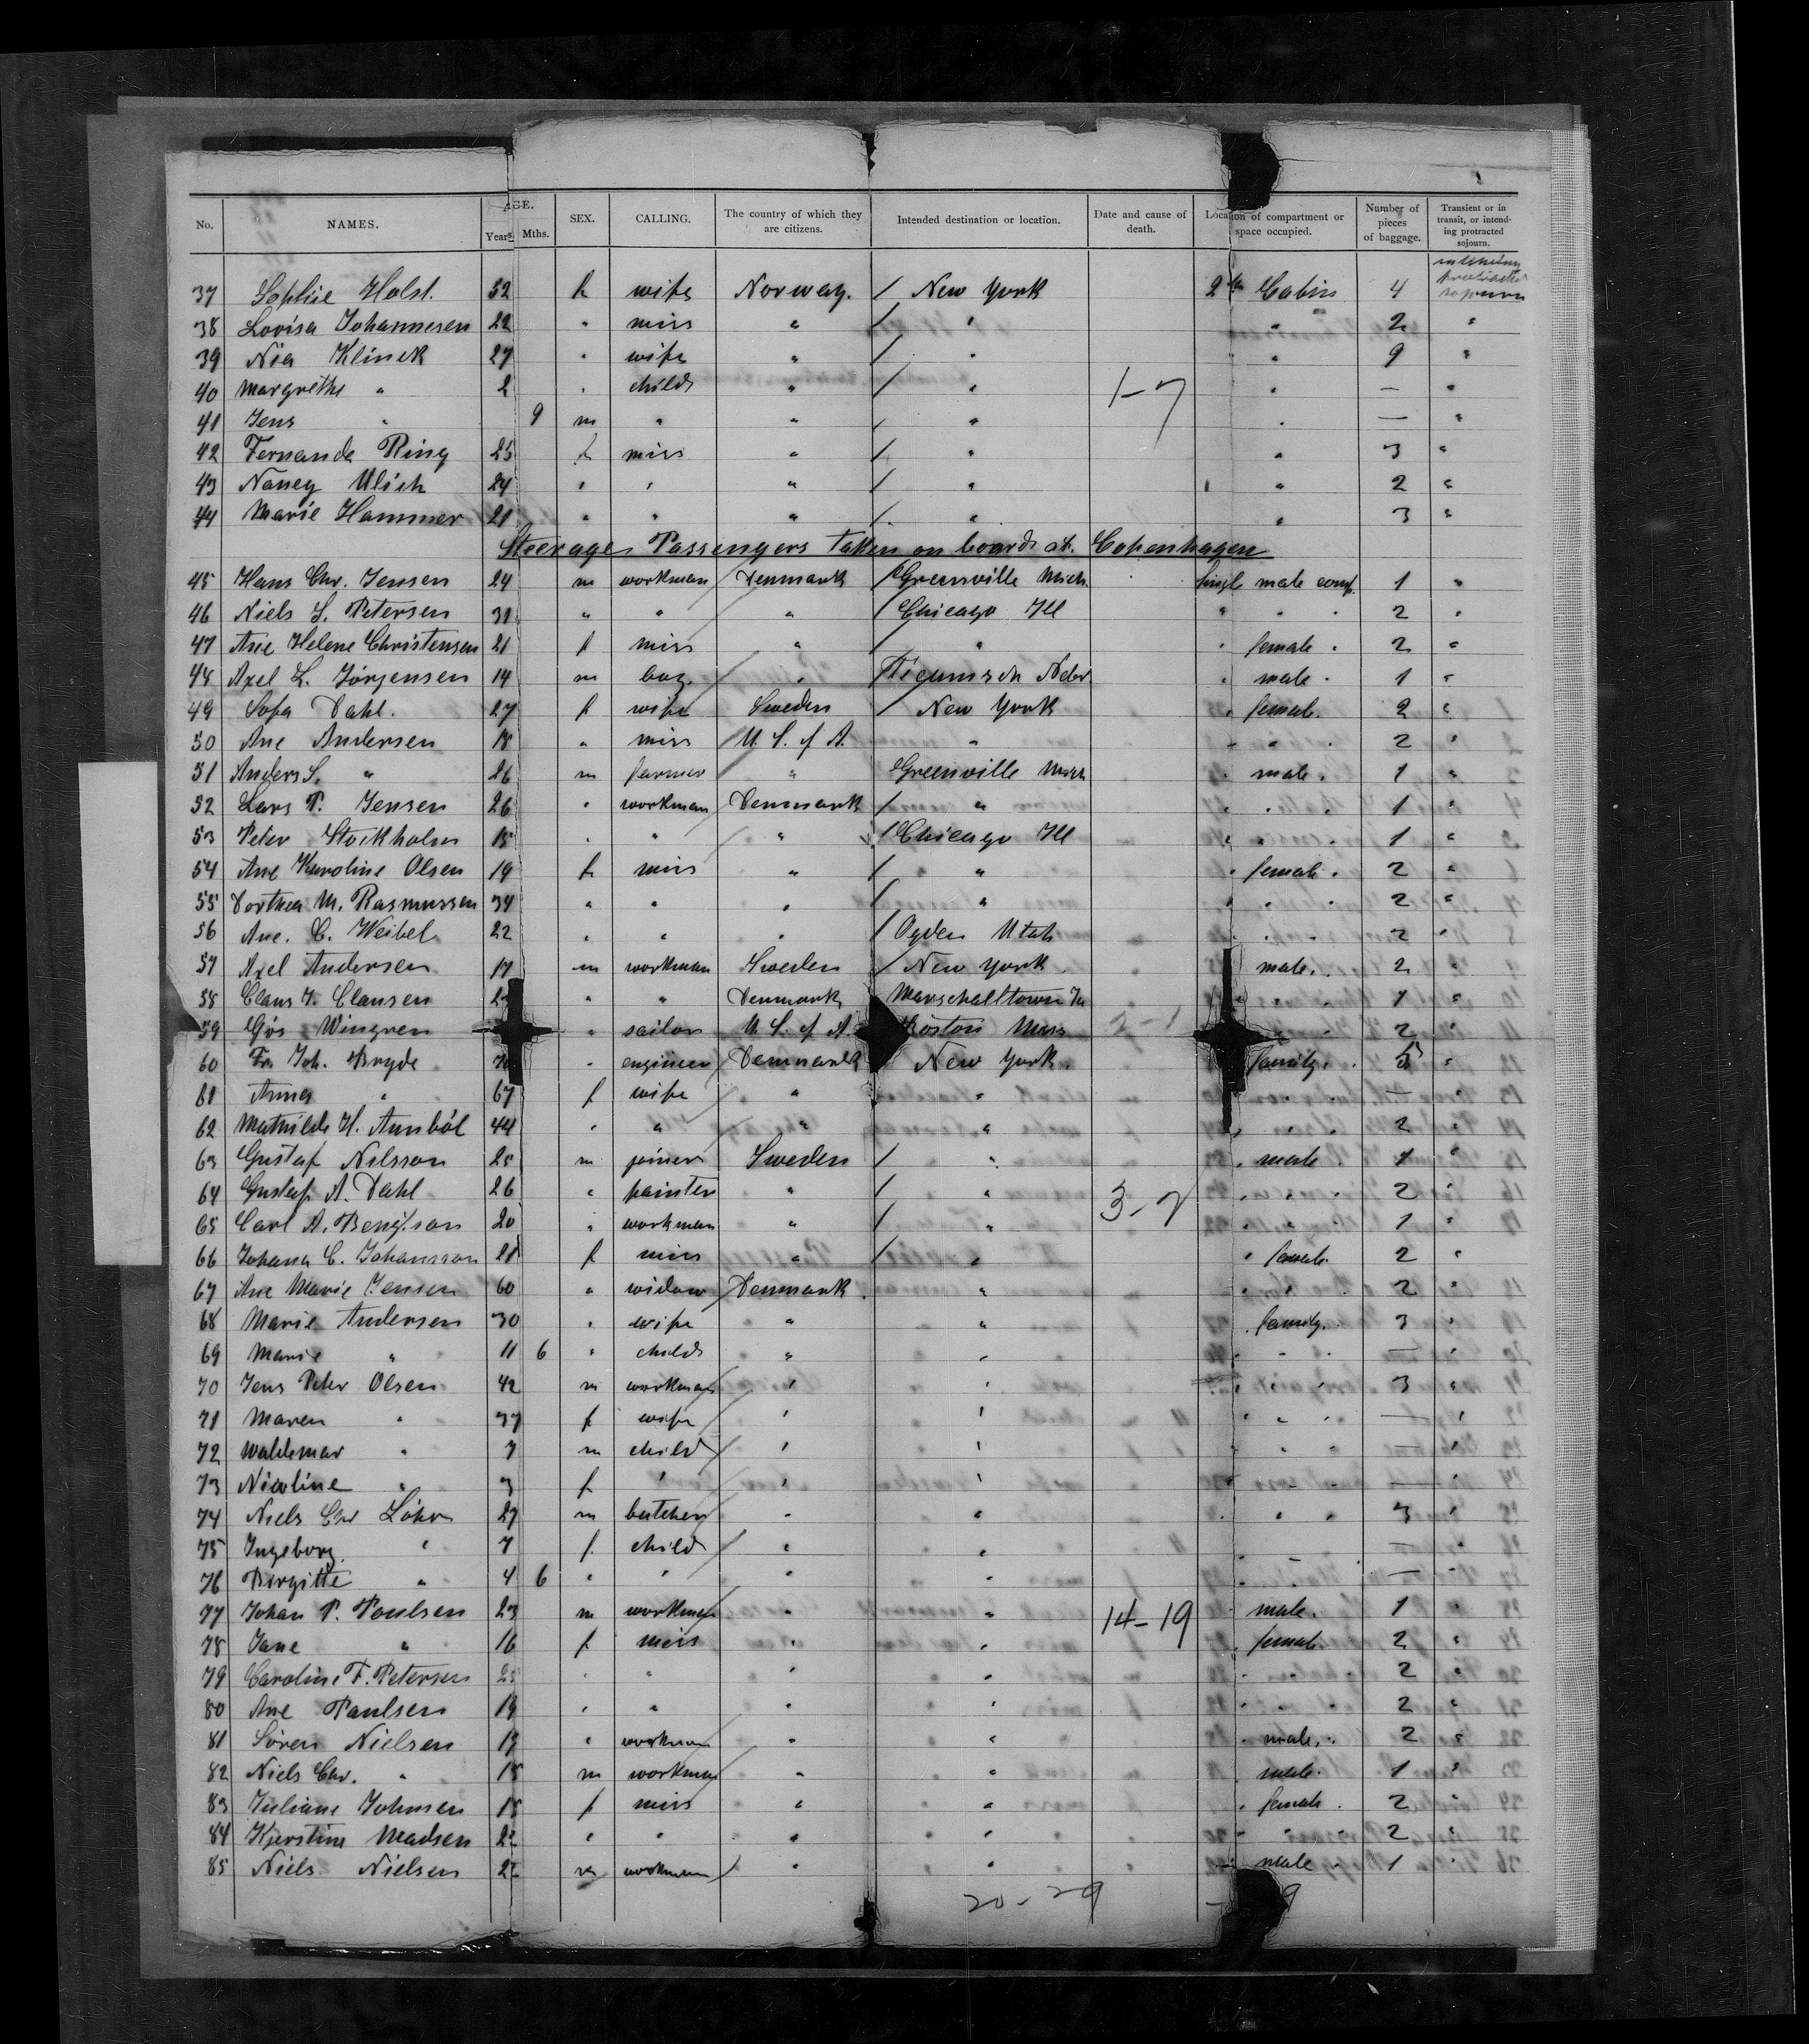 No. NAMES. AGE. Years. Mths. SEX. CALLING. The country of which they are citizens. Intended destination or location. Date and cause of death. Location of compartment or space occupied. Number of pieces of baggage. Transient or in transit, or intending protracted sojourn.
37 Sophie Holst. 32 f wife Norway. / New York 2 Cabin 4 protracted sojourn
38 Lovisa Johannesen 22 " miss " / " " 2 "
39 Nia Klinck 27 " wife " / " " 9 "
40 Margrethe " 2 " child " / " 1-7 " — "
41 Jens " 9 m " " " " — "
42 Fernanda Ring 25 f miss " / " " 3 "
43 Nancy Ulich 24 " " " / " " 2 "
44 Marie Hammer 21 " " " / " " 3 "
Steerage Passengers taken on board at Copenhagen
45 Hans Chr. Jensen 24 m workman Denmark / Greenville Mich. single male comp. 1 "
46 Niels S. Petersen 31 " " " / Chicago Ill " " " 2 "
47 Ane Helene Christensen 21 f miss " / " " female " 2 "
48 Axel L. Jörgensen 14 m boy " / Nebr. " male " 1 "
49 Sofa Dahl. 27 f wife Sweden / New York " female. 2 "
50 Ane Andersen 18 " miss U. S. of A. " " " " 2 "
51 Anders S. " 26 m farmer " Greenville Mich " male " 1 "
52 Lars P. Jensen 26 " workman Denmark / " " " " 1 "
53 Peter Stockholm 15 " " " / Chicago Ill " " " 1 "
54 Ane Karoline Olsen 19 f miss " / " " " female " 2 "
55 Dorthea M. Rasmussen 34 " " " / " " " " 2 "
56 Ane. C. Weibel 22 " " " / Ogden Utah " " " 2 "
57 Axel Andersen 17 m workman Sweden / New York " male " 2 "
58 Claus J. Clausen " " Denmark Marschalltown " " " 1 "
59 Wingren " sailor U. S. of A. Boston Mass 2-1 " " 2 "
60 Joh. Bryde " engineer Denmark New York. family " 5 "
61 Anna " 67 f wife " " " " — "
62 Mathilde H. 44 " " " " " " " 2 "
63 Gustaf Nilsson 25 m joiner Sweden / " " male " 1 "
64 Gustaf A. Dahl 26 " painter " / " 3-7 " " " 2 "
65 Carl A. Bengtson 20 " workman " / " " " " 1 "
66 Johana C. Johansson 21 f miss " / " " female 2 "
67 Ane Marie Jensen 60 " widow Denmark " " " " 2 "
68 Marie Andersen 30 " wife " " " family. 3 "
69 Marie " 11 6 " child " " " " " — "
70 Jens Peter Olsen 42 m workman " " " " " 3 "
71 Maren " 37 f wife " " " " " — "
72 Waldemar " 7 m child " " " " " — "
73 Nicoline " 3 f " " " " " " — "
74 Niels Chr 27 m butcher " " " " " 3 "
75 Ingeborg " 7 f child " " " " — "
76 Birgitte " 4 6 " " " " " " — "
77 Johan P. Poulsen 23 m workman " " 14-19 male. 1 "
78 Jane " 16 f miss " " " female 2 "
79 Caroline F. Petersen 25 " " " " " " " 2 "
80 Ane Paulsen 19 " " " " " " " 2 "
81 Sören Nielsen 19 " workman " " " male " 2 "
82 Niels Chr. " 18 m workman " " " male " 1 "
83 Juliane Johnsen 18 f miss " " " female " 2 "
84 Kjerstine Madsen 22 " " " " " " " 2 "
85 Niels Nielsen 22 m workman " " male " 1 "
20-29
9